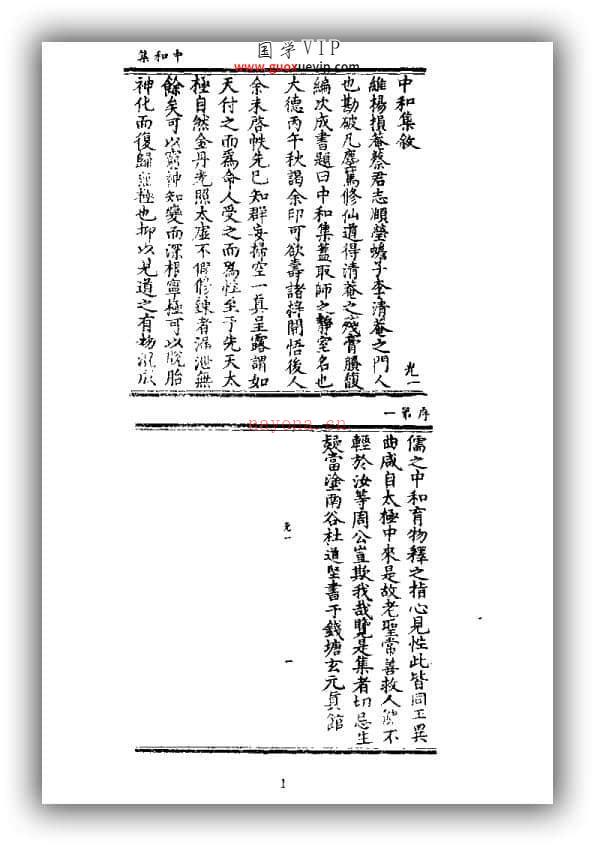 国学VIP
www.guoxuevip.com
中和集
中和集敘
光一
維楊損菴蔡君志頥瑩蟾子李清菴之門人
也勘破凡塵篤修仙道得清菴之殘膏賸馥
編次成書題曰中和集蓋取師之靜室名也
大德丙午秋謁余印可欲壽諸梓開悟後人
余未啓帙先已知群妄掃空一真呈露謂如
天付之而爲命人受之而爲性至于先天太
極自然金丹光照太虛不假修鍊者漏泄無
餘矣可以窮神知變而深根寧極可以脫胎
神化而復歸無極也抑以見道之有物混成
nayona.cn
序第一
儒之中和育物釋之指心見性此皆同工異
曲咸自太極中來是故老聖常善救人佛不
輕於汝等周公豈欺我哉覽是集者切忌生
疑當塗南谷杜道堅書于錢塘玄元真館
光一
一
1